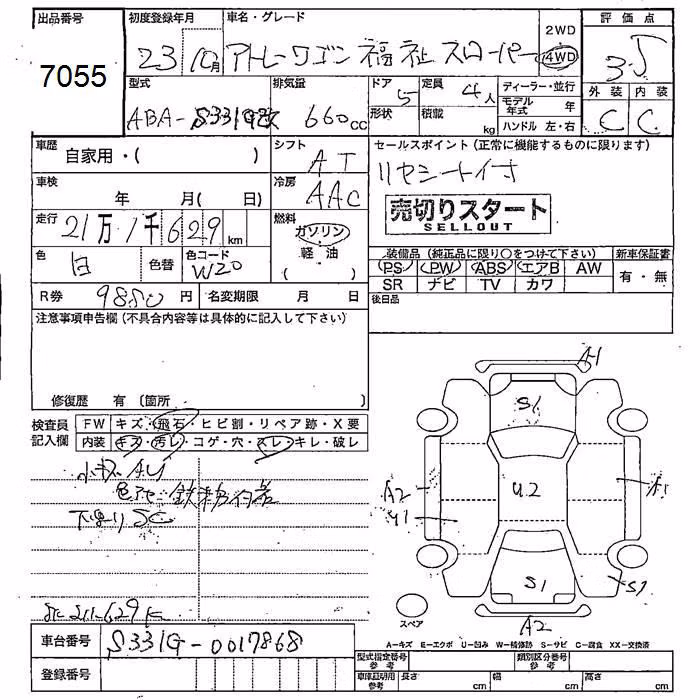 出品番号 初度登録年月 車名・グレード 2WD 評価点
7055 23 10月 アトレーワゴン 福祉スローパー 4WD 3.5
型式 排気量 ドア 5 定員 4人 ディーラー・並行 外装 内装
ABA-S331G改 660cc 形状 積載 kg モデル年式 年 C C
ハンドル 左・右
車歴 自家用・( ) シフト AT セールスポイント(正常に機能するものに限ります)
リヤシート付
車検 年 月( 日) 冷房 AAC
売切りスタート
SELLOUT
走行 21万1千629km 燃料 ガソリン・軽油
装備品(純正品に限り○をつけて下さい) 新車保証書
色 白 色替 色コード W20 PS PW ABS エアB AW 有・無
SR ナビ TV カワ
R券 9880円 名変期限 月 日 後日品
注意事項申告欄(不具合内容等は具体的に記入して下さい)
修復歴 有〔箇所 〕
検査員記入欄 FW キズ・飛石・ヒビ割・リペア跡・X要
内装 キズ・汚レ・コゲ・穴・スレ・キレ・破レ
小キズ AU
色アセ 鉄粉付着
下廻り SC
A1
S1
A2 U2 A1
Y1
S1 S1
スペア A2
A-キズ E-エクボ U-凹み W-補修跡 S-サビ C-腐食 XX-交換済
211629K
車台番号 S331G-0017868
型式指定番号 参考 類別区分番号 参考
登録番号 車庫証明用 参考 長さ cm 幅 cm 高さ cm